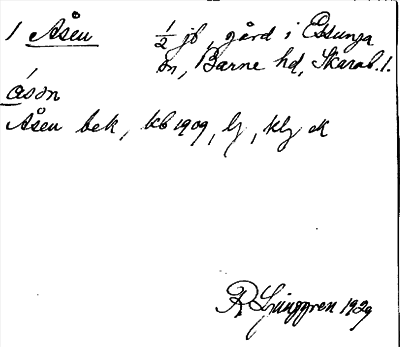 1 Åsen ½ jb, gård i Essunga
sn, Barne hd, Skarab. l.
åsən
Åsen bek, kb 1909, lj, klj ek
R Ljunggren 1929